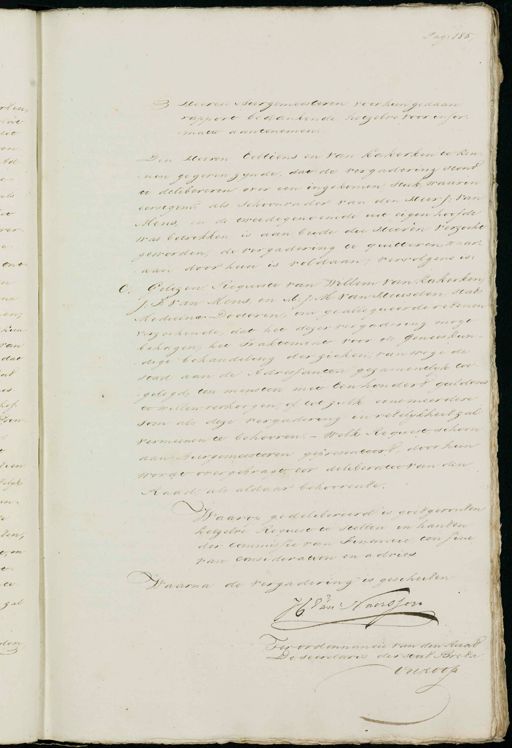 Page 185
3 Heeren Burgemeesteren voor hun gedaan
rapport bedankende hetzelve voor infor-
matie aantenemen
Den Heeren en van Bakerken te ken-
nen gegeven zynde, dat de vergadering stond
te delibereren over een ingekomen stuk waarin
eerstgem. als schoonvader van den Heer J. van
Mens, en de tweedegenoemde uit eigen hoofde
was betrokken is aan beide die Heeren verzocht
geworden, de vergadering te quitteren, waar
aan door hun is voldaan; vervolgens is
6. Gelezen Requeste van Willem van Bakerken
J. van Mens, en M. J. A. van Heusden Stads
Medicinae Doctoren, om geallegueerde redenen
verzoekende, dat het deze vergadering moge
behagen, het Tractement voor de geneeskun-
dige behandeling der zieken, van wege de
stad aan de Adressanten gezamentlyk toe
gelegd, ten minsten met een honderd guldens
te willen verhoogen, of tot zulk eene meerdere
som als deze vergadering in redelykheid zal
vermeenen te behooren. – Welk Request schoon
aan Burgemeesteren gepresenteerd, door hun
wordt overgebragt ter deliberatie van den
Raad, als aldaar behoorende.
Waarop gedelibereerd is goedgevonden
hetzelve Request te stellen in handen
der Commissie van Finantie ten fine
van consideratien en advies
Waarna de vergadering is gescheiden
Ter ordonnantie van den Raad
De Secretaris der stad